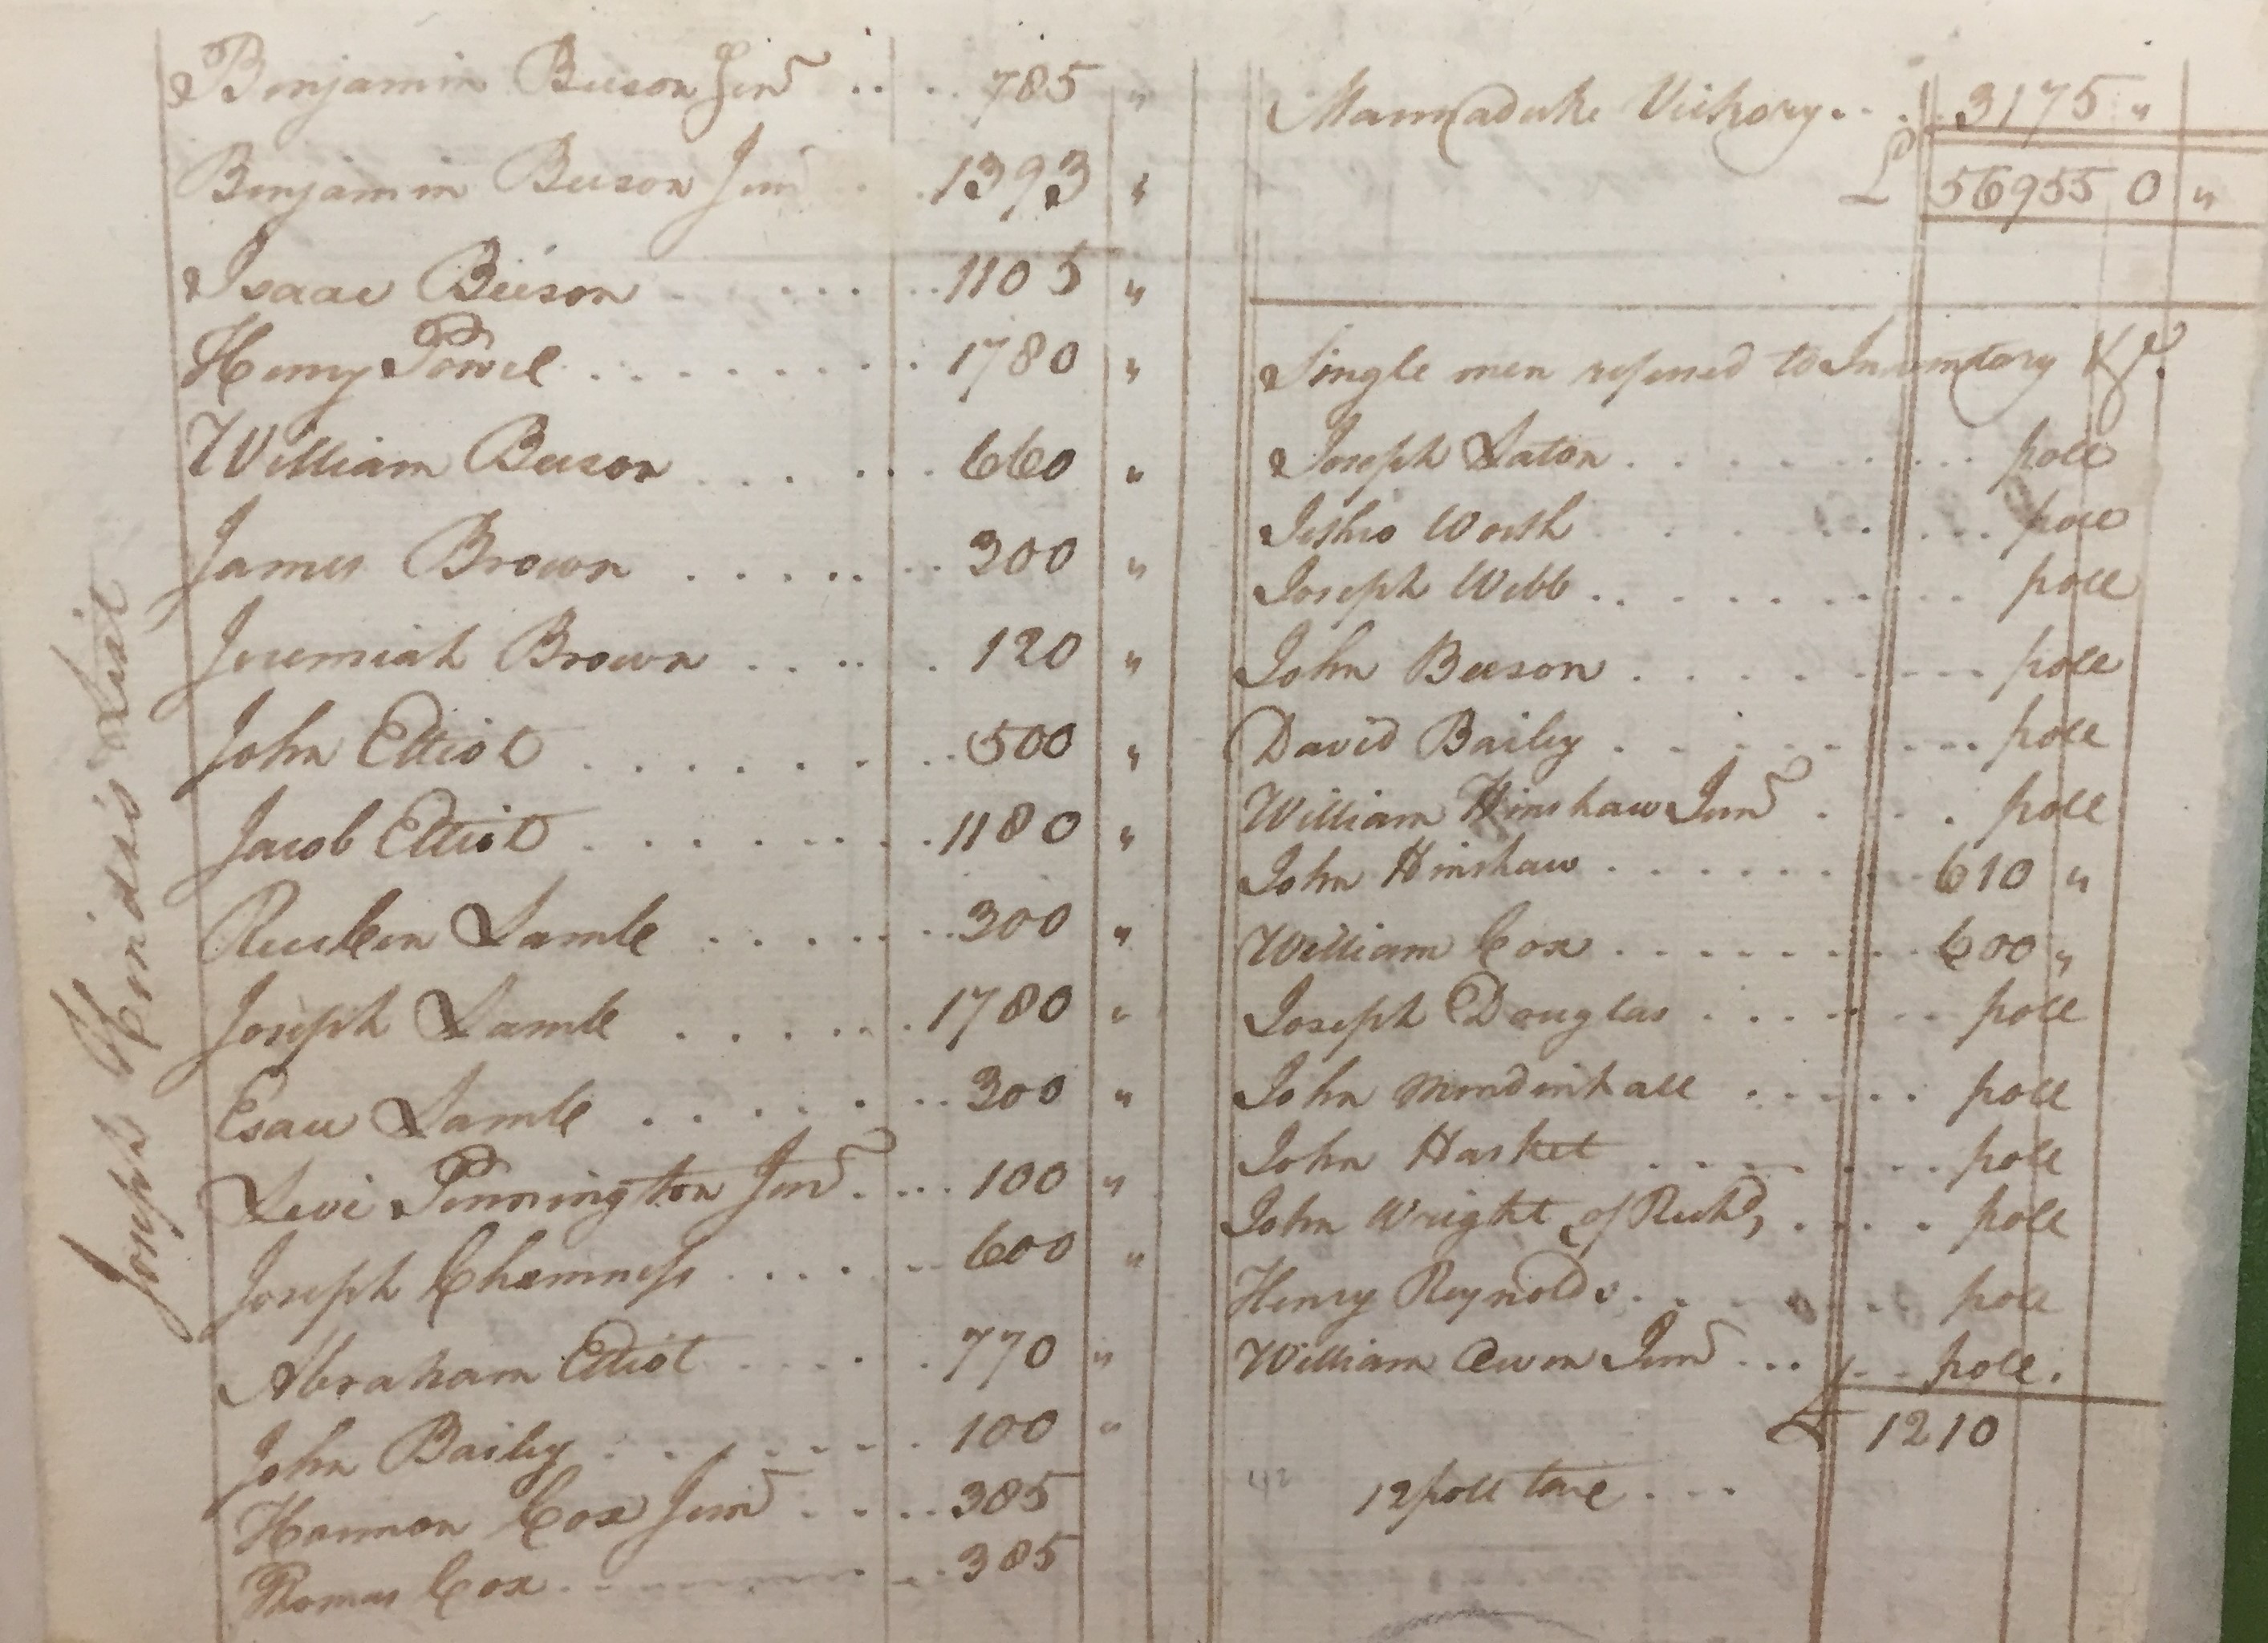 Joseph Hinds's List
Benjamin Beeson Senr .... 785 "
Benjamin Beeson Junr ... 1393 "
Isaac Beeson ....... 1105 "
Henry Powel ........ 1780 "
William Beeson ...... 660 "
James Brown ....... 300 "
Jeremiah Brown ..... 120 "
John Elliot ........ 500 "
Jacob Elliot ........ 1180 "
Reuben Lamb ....... 300 "
Joseph Lamb ...... 1780 "
Esau Lamb ....... 300 "
Levi Pennington Junr .... 100 "
Joseph Chamness ...... 600 "
Abraham Elliot ..... 770 "
John Bailey ....... 100 "
Harmon Cox Junr .... 385
Thomas Cox ........ 385
Marmaduke Vickory ... 3175 "
£ 56955 0 "
Single men refused to Inventory &c.
Joseph Laton ......... poll
Jethro Worth ........ poll
Joseph Webb ......... poll
John Beeson ......... poll
David Bailey ......... poll
William Hinshaw Junr .... poll
John Hinshaw ........ 610 "
William Cox ........ 600 "
Joseph Douglas ....... poll
John Mendinhall ..... poll
John Hasket ....... poll
John Wright of Richd, .... poll
Henry Reynolds ...... poll
William Owen Junr ..... poll.
£ 1210
42 12 poll tax ...